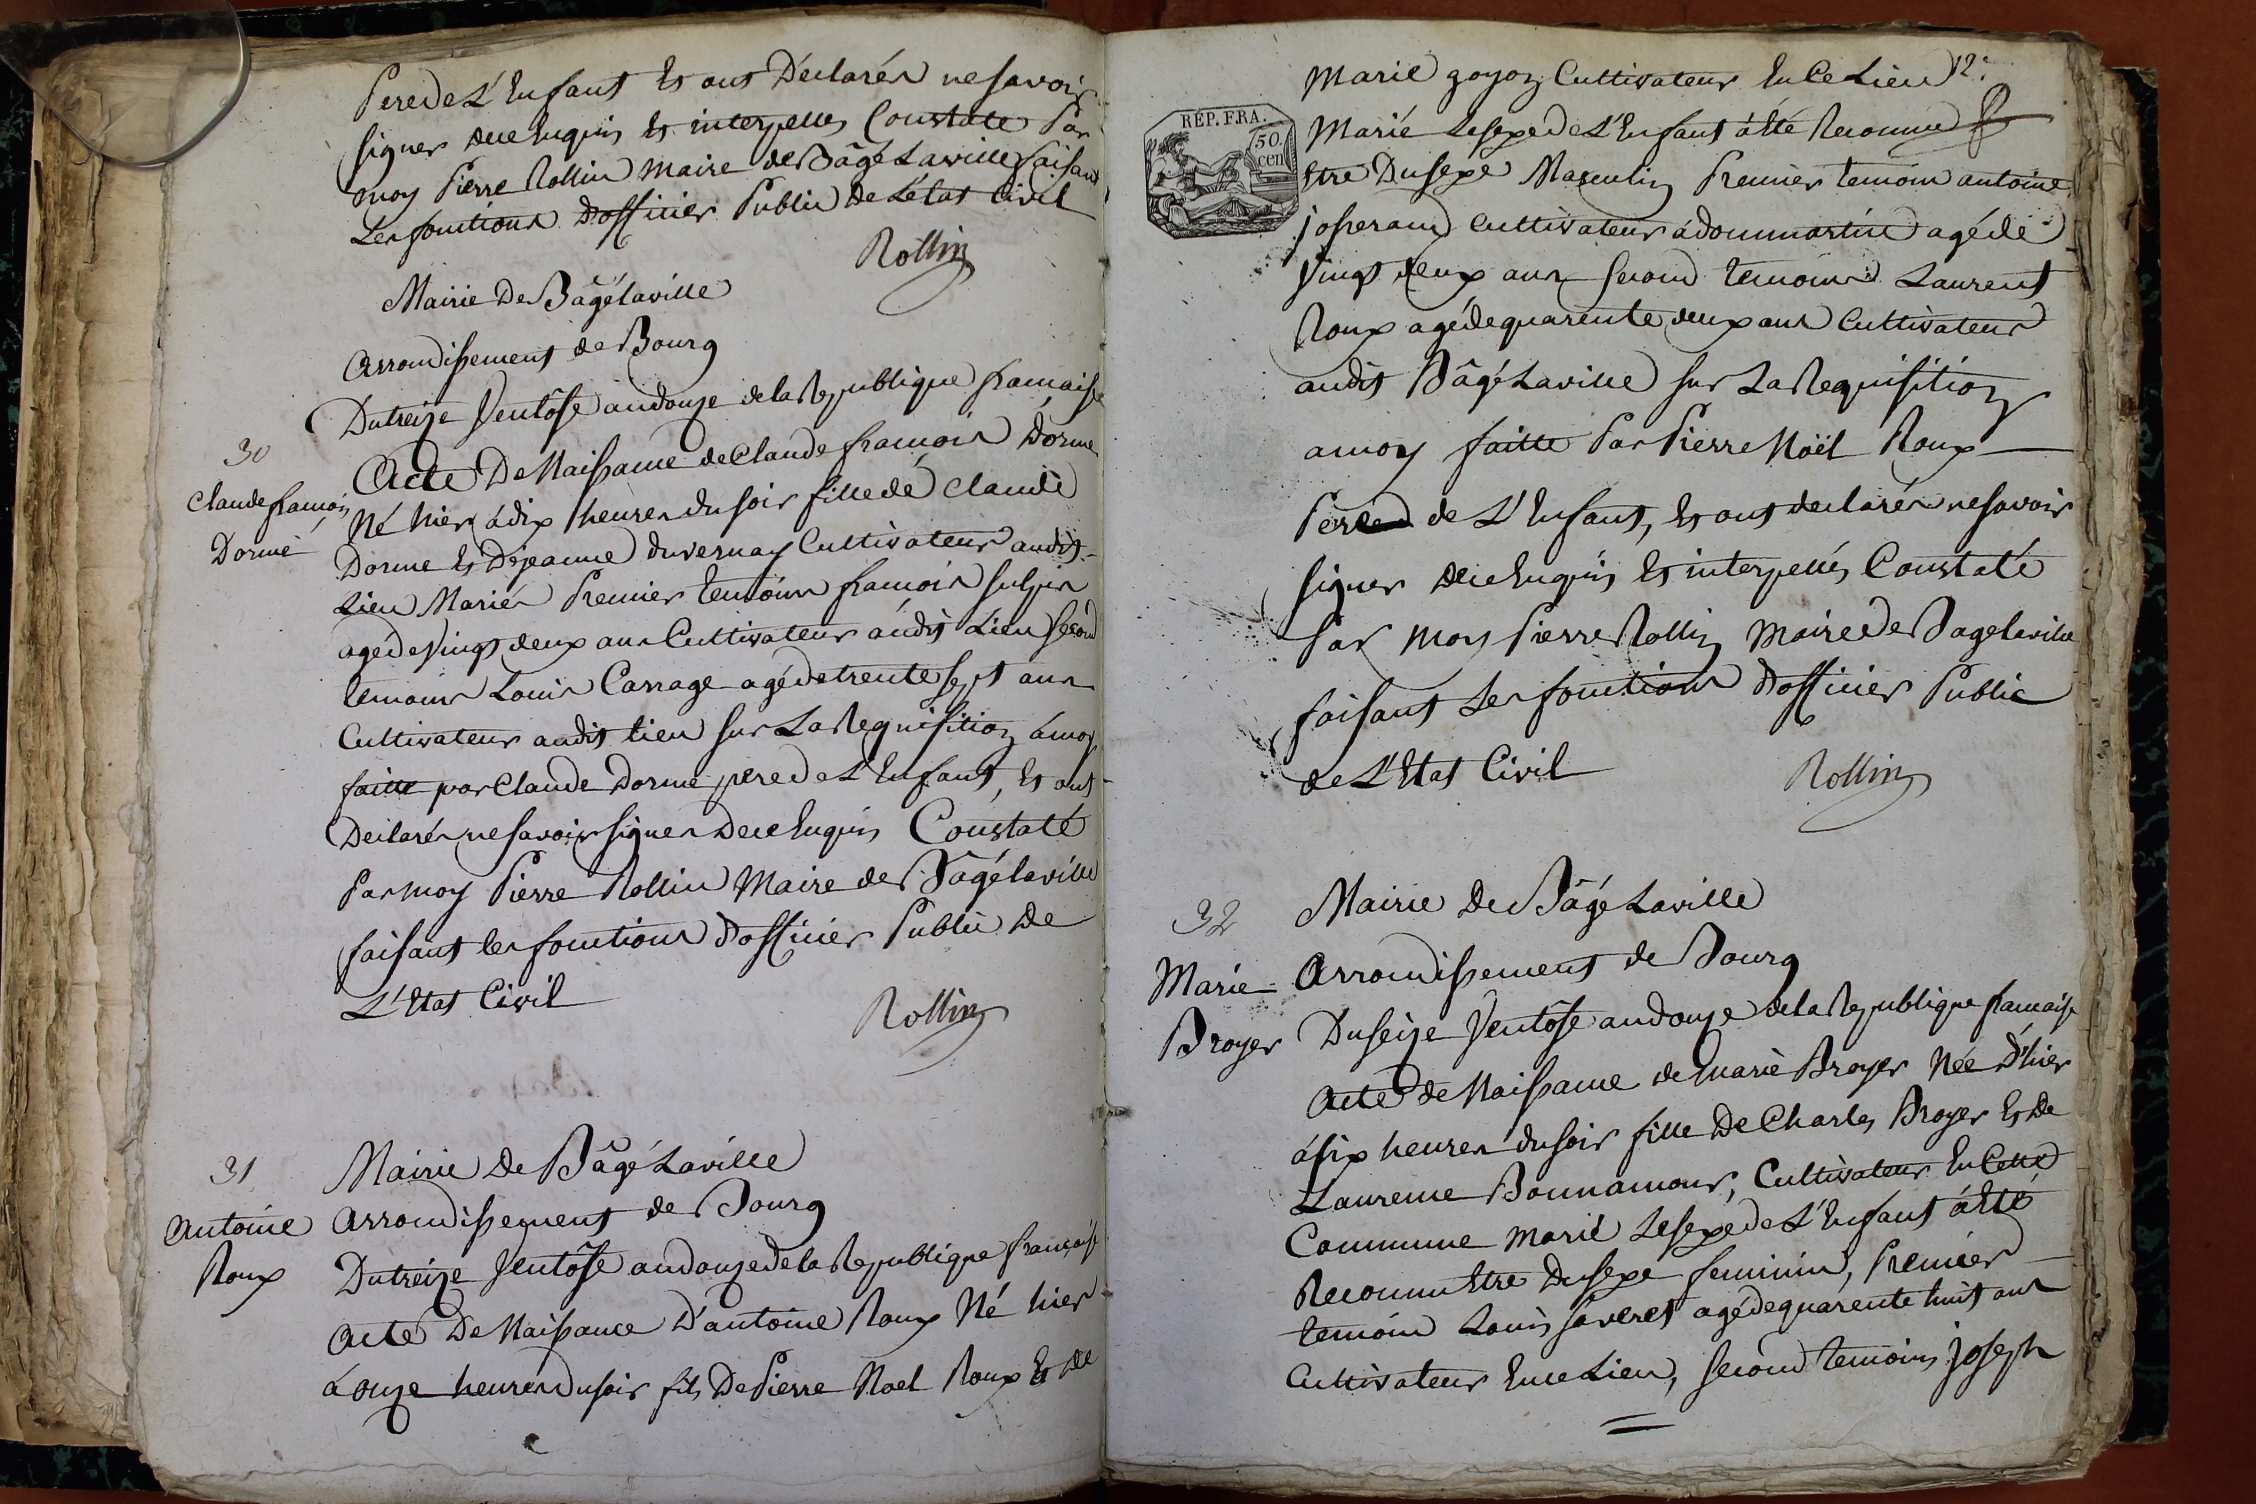 Pere de L'Enfant Et ont Déclarés ne savoir
signer de ce Enquis Et interpelles Constaté Par
moy Pierre Rollin Maire de Bâgé Laville faisant
Les fonctions D'officier Public De L'état Civil
Rollin
Mairie De Bâgélaville
Arrondissement de Bourg
Du treize Ventôse an douze de la Republique francaise
30
Acte De Naissance de Claude francois Dorme
Claude francois
Dorme
Né hier à dix heures du soir fille de Claude
Dorme Et De jeanne duvernay Cultivateur audit
Lieu Mariés Premier temoins francois sulpis
agé de Vingt deux ans Cultivateur audit Lieu second
temoins Louis Carrage agé de trente sept ans
Cultivateur audit lieu sur La Requisition a moy
faitte par Claude Dorme pere de L'Enfant, Et ont
Declarés ne savoir signer De ce Enquis Constaté
Par moy Pierre Rollin Maire de Bâgé laville
faisant les fonctions D'officier Public De
L'Etat Civil
Rollin
31
Mairie De Bâgé Laville
Antoine
Roux
Arrondissement de Bourg
Du treize Ventôse an douze de la Republique française
Acte De Naissance D'antoine Roux Né hier
à onze heures du soir fils De Pierre Noel Roux Et de
12.
Marie goyon Cultivateur En Ce Lieu
RÉP. FRA.
50.
cen
Marié Le sexe de L'Enfant à été Reconnu
Etre Du sexe Masculin Premier temoin antoine
josserand Cultivateur à dommartin agé de
Vingt deux ans second temoins Laurent
Roux agé de quarente deux ans Cultivateur
audit Bâgé Laville sur La Requisition
a moy faitte Par Pierre Noël Roux
Pere de L'Enfant, Et ont declarés ne savoir
signer De ce Enquis Et interpellés Constaté
Par moy Pierre Rollin Maire de Bagelaville
faisant Les fonctions D'officier Public
de L'Etat Civil
Rollin
32
Mairie De Bâgé Laville
Marie
Broyer
Arrondissement de Bourg
Du seize Ventôse an douze de la Republique francaise
Acte de Naissance de marie Broyer Née D'hier
à six heures du soir fille De Charles Broyer Et De
Laurence Bonnamour, Cultivateur En Cette
Commune Marié Le sexe de L'Enfant à été
Reconnu Etre Du sexe feminin, Premier
temoin Louis saveret agé de quarente huit ans
Cultivateur En ce Lieu, second temoins joseph